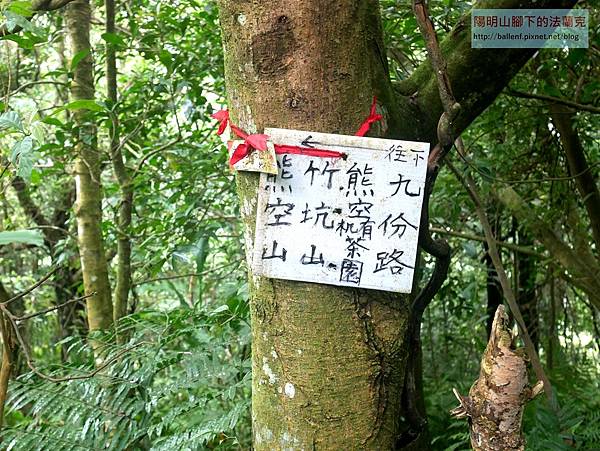 陽明山腳下的法蘭克
http://ballenf.pixnet.net/blog
←
往下
九份路
熊空有机茶園
竹坑山
熊空山